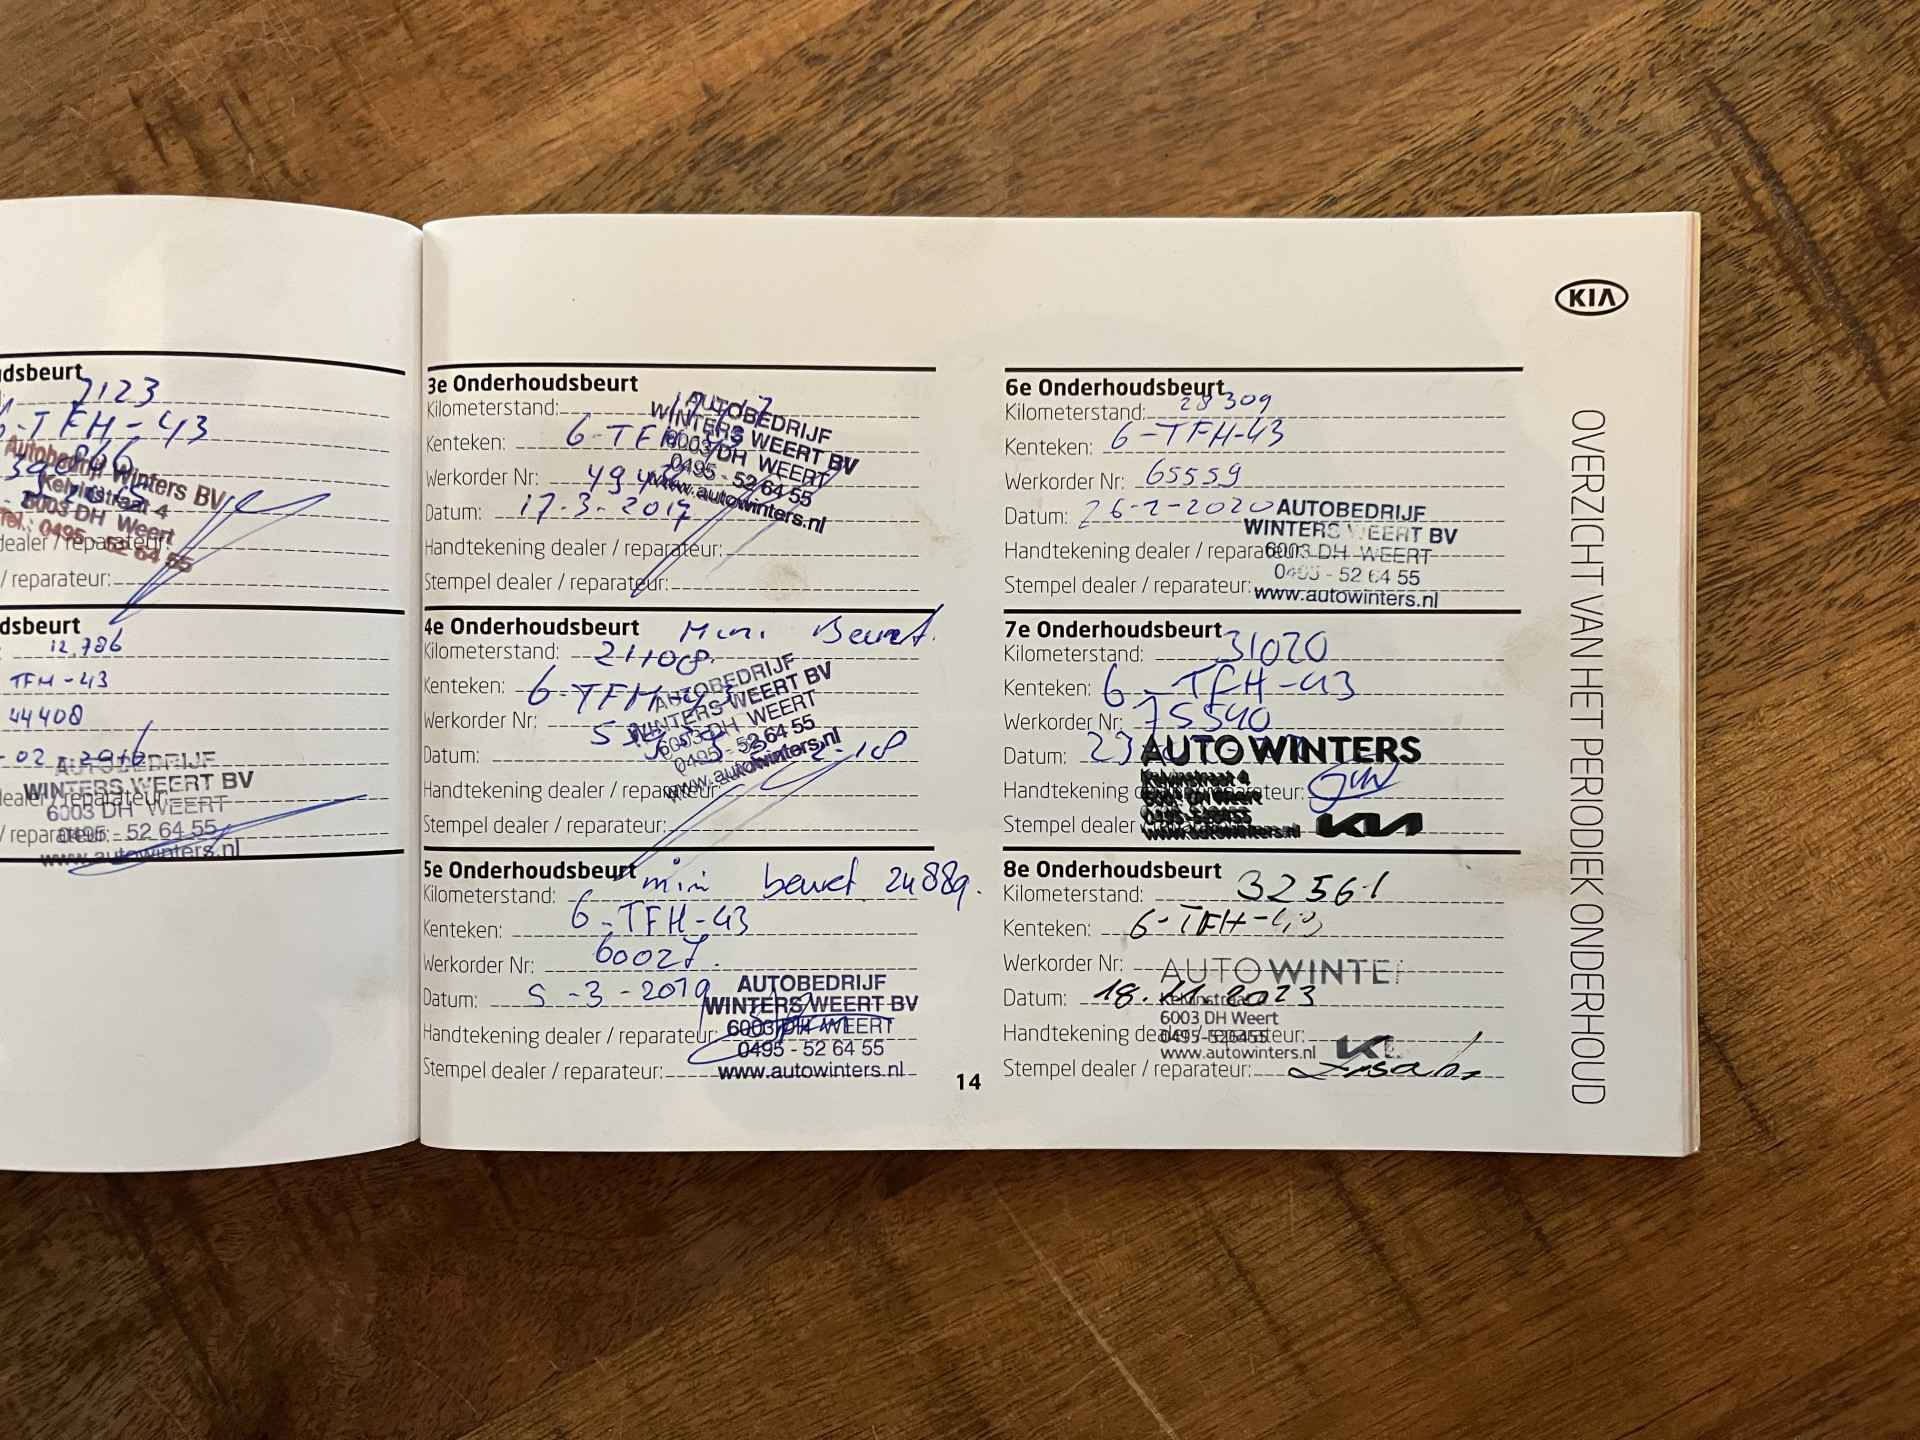 KIA
OVERZICHT VAN HET PERIODIEK ONDERHOUD
dsbeurt
7123
6-TFH-43
Autobedrijf Winters BV
Kelvinstraat 4
6003 DH Weert
Tel.: 0495 - 52 64 55
dealer / reparateur:
/ reparateur:
dsbeurt
12.786
TFH-43
44408
-02-2016
AUTOBEDRIJF
WINTERS WEERT BV
dealer / reparateur:
6003 DH WEERT
/ reparateur:
0495 - 52 64 55
www.autowinters.nl
3e Onderhoudsbeurt
Kilometerstand:
Kenteken: 6-TFH-43
Werkorder Nr:
Datum: 17-3-2017
Handtekening dealer / reparateur:
Stempel dealer / reparateur:
AUTOBEDRIJF
WINTERS WEERT BV
6003 DH WEERT
0495 - 52 64 55
www.autowinters.nl
4e Onderhoudsbeurt Mini Beurt.
Kilometerstand: 21108
Kenteken: 6-TFH-43
Werkorder Nr:
Datum: 2-18
Handtekening dealer / reparateur:
Stempel dealer / reparateur:
AUTOBEDRIJF
WINTERS WEERT BV
6003 DH WEERT
0495 - 52 64 55
www.autowinters.nl
5e Onderhoudsbeurt mini beurt 24889.
Kilometerstand:
Kenteken: 6-TFH-43
Werkorder Nr: 60027.
Datum: 5-3-2019
Handtekening dealer / reparateur:
Stempel dealer / reparateur:
AUTOBEDRIJF
WINTERS WEERT BV
6003 DH WEERT
0495 - 52 64 55
www.autowinters.nl
14
6e Onderhoudsbeurt
Kilometerstand: 28309
Kenteken: 6-TFH-43
Werkorder Nr: 65559
Datum: 26-2-2020
Handtekening dealer / reparateur:
Stempel dealer / reparateur:
AUTOBEDRIJF
WINTERS WEERT BV
6003 DH WEERT
0495 - 52 64 55
www.autowinters.nl
7e Onderhoudsbeurt
Kilometerstand: 31020
Kenteken: 6-TFH-43
Werkorder Nr: 75540
Datum: 23
AUTO WINTERS
Kelvinstraat 4
6001 DH Weert
Handtekening dealer / reparateur:
Stempel dealer
KIA
8e Onderhoudsbeurt
Kilometerstand: 32561
Kenteken: 6-TFH-43
Werkorder Nr:
AUTO WINTE
Datum: 18.11.2023
Kelvinstraat
6003 DH Weert
Handtekening dealer / reparateur:
0495-526455
www.autowinters.nl
Stempel dealer / reparateur: